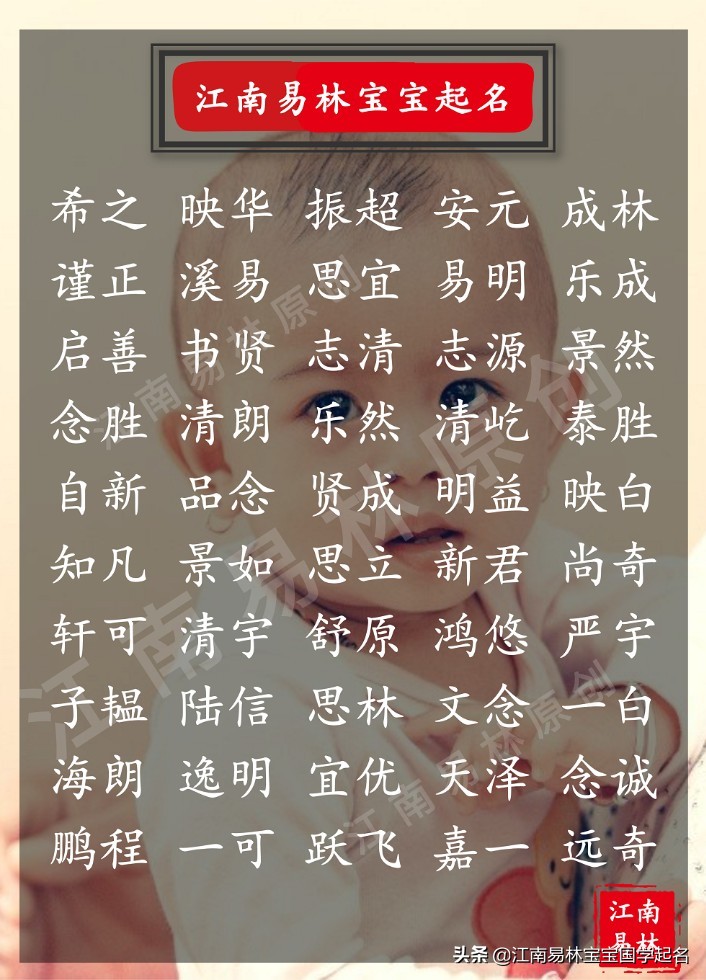 江南易林宝宝起名
希之 映华 振超 安元 成林
谨正 溪易 思宜 易明 乐成
启善 书贤 志清 志源 景然
念胜 清朗 乐然 清屹 泰胜
自新 品念 贤成 明益 映白
知凡 景如 思立 新君 尚奇
轩可 清宇 舒原 鸿悠 严宇
子韫 陆信 思林 文念 一白
海朗 逸明 宜优 天泽 念诚
鹏程 一可 跃飞 嘉一 远奇
江南易林原创
江南易林原创
江南易林原创
江南
易林
头条 @江南易林宝宝国学起名